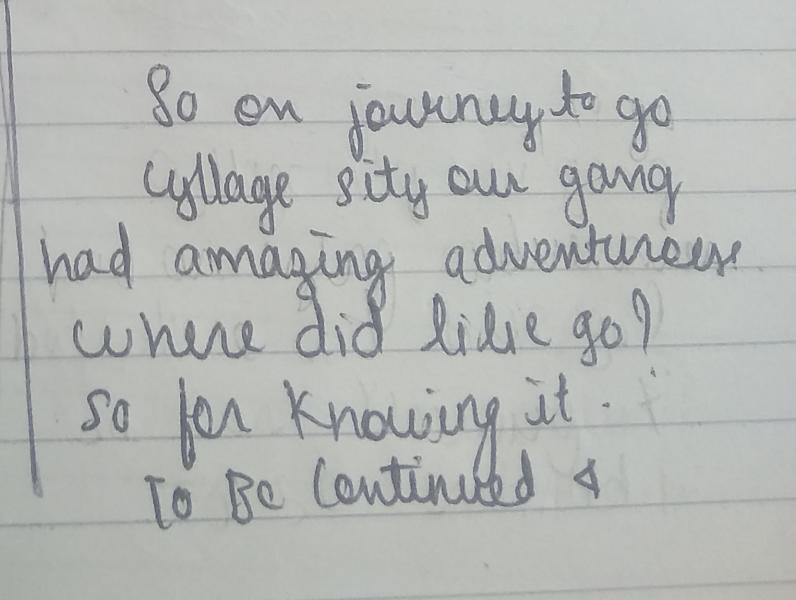 So on journey to go
cyllage sity our gang
had amazing adventures
where did lilie go?
so for knowing it.
To Be Continued